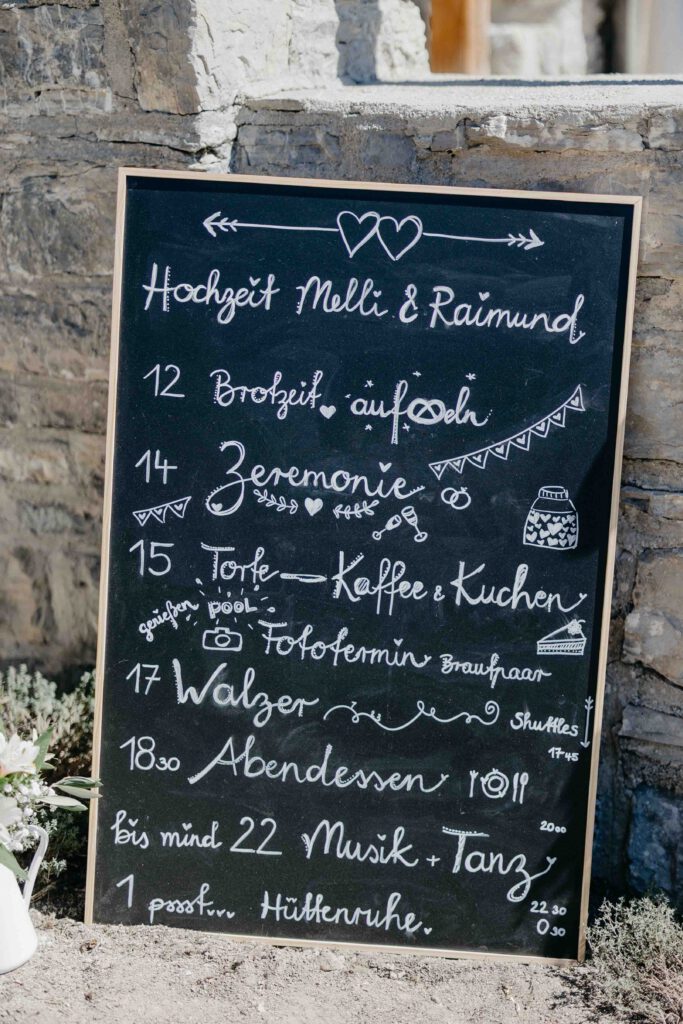 Hochzeit Melli & Raimund
12 Brotzeit aufbrezeln
14 Zeremonie
15 Torte - Kaffee & Kuchen
genießen POOL
Fototermin Brautpaar
17 Walzer
Shuttles
17 45
18 30 Abendessen
20 00
bis mind 22 Musik + Tanz
22 30
1 pssst... Hüttenruhe.
0 30